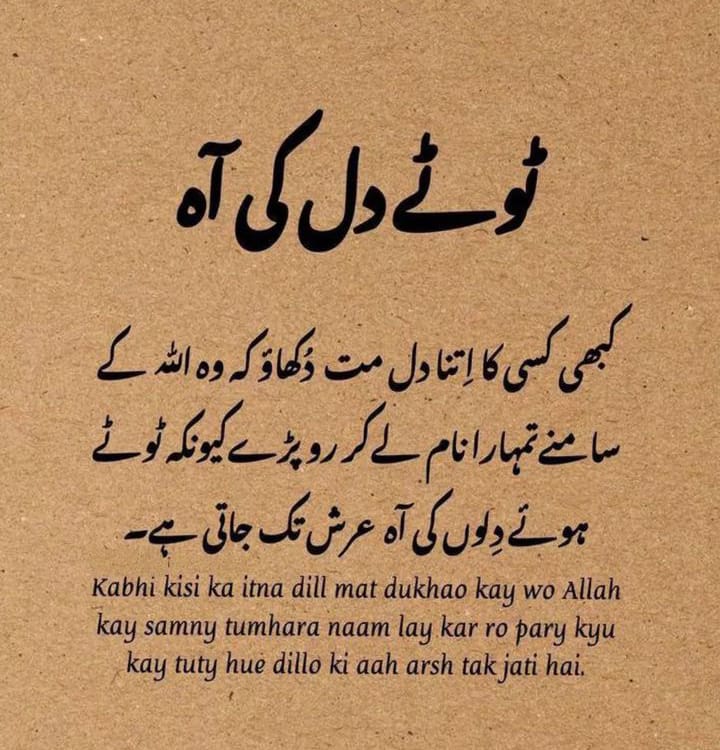 ٹوٹے دل کی آہ
کبھی کسی کا اِتنا دل مت دُکھاؤ کہ وہ اللہ کے
سامنے تمہارا نام لے کر رو پڑے کیونکہ ٹوٹے
ہوئے دِلوں کی آہ عرش تک جاتی ہے۔
Kabhi kisi ka itna dill mat dukhao kay wo Allah
kay samny tumhara naam lay kar ro pary kyu
kay tuty hue dillo ki aah arsh tak jati hai.